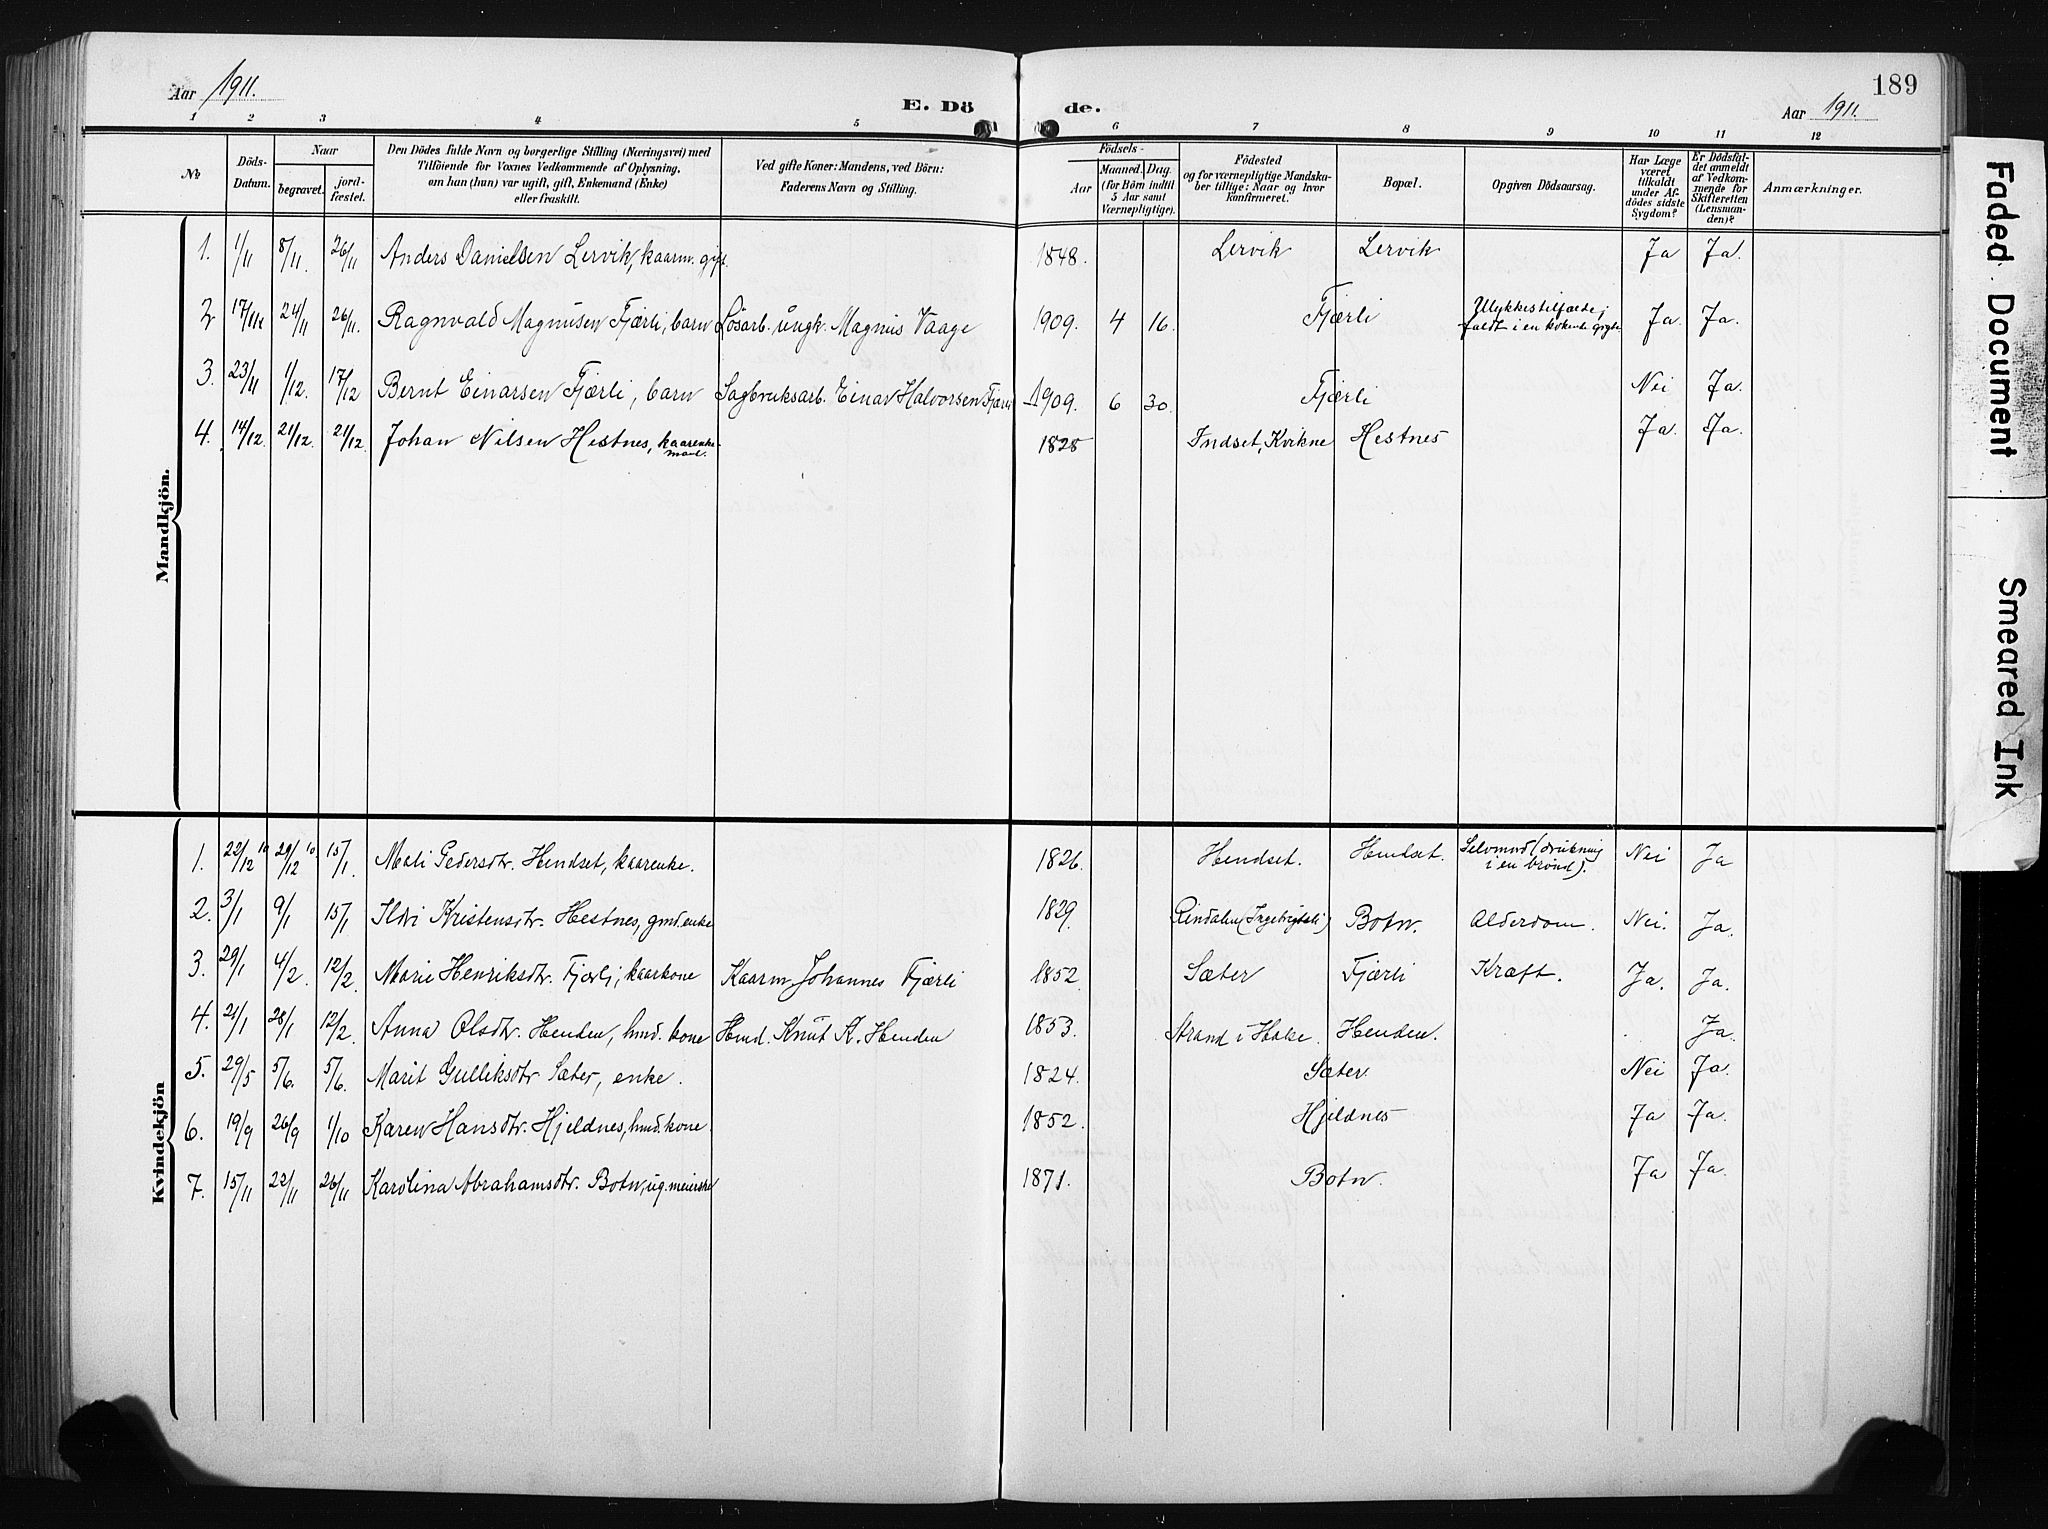 189
Aar 1911.
E. Döde.
Aar 1911.
1 2 3 4 5 6 7 8 9 10 11 12
No
Döds-Datum.
Naar
begravet.
jord-fæstet.
Den Dödes fulde Navn og borgerlige Stilling (Næringsvei) med
Tilföiende for Voxnes Vedkommende af Oplysning,
om han (hun) var ugift, gift, Enkemand (Enke)
eller fraskilt.
Ved gifte Koner: Mandens, ved Börn:
Faderens Navn og Stilling.
Födsels-
Aar
Maaned. Dag.
(for Börn indtil
5 Aar samt
Værnepligtige).
Födested
og for værnepligtige Mandska-
ber tillige: Naar og hvor
konfirmeret.
Bopæl.
Opgiven Dödsaarsag.
Har Læge
været
tilkaldt
under Af-
dödes sidste
Sygdom?
Er Dödsfal-
det anmeldt
af Vedkom-
mende for
Skifteretten
(Lensman-
den)?
Anmærkninger.
Mandkjön.
1. 1/11 8/11. 26/11 Anders Danielsen Lervik, kaarm. gift. 1848. Lervik Lervik Ja Ja.
2 17/11 24/11 26/11. Ragnvald Magnusen Fjærli, barn Lösarb. ungk. Magnus Vaage 1909. 4 16. Fjærli Ulykkestilfælde; faldt i en kokende gryte Ja. Ja.
3. 23/11 1/12. 17/12 Bernt Einarsen Fjærli, barn Sagbruksarb. Einar Halvorsen Fjærli 1909. 6 30. Fjærli Nei Ja.
4. 14/12. 21/12. 21/12. Johan Nilsen Hestnes, kaarenke-mand. 1828 Indset, Kvikne Hestnes Ja. Ja.
Kvindekjön
1. 22/12 10 29/12 10. 15/1. Mali Pedersdtr. Hendset, kaarenke. 1826. Hendset. Hendset. Selvmord (drukning i en brönd). Nei Ja
2. 3/1 9/1 15/1 Ildri Kristensdtr. Hestnes, gmd. enke 1829. Rindalen (Ingebrigtsli) Botn. Alderdom. Nei. Ja.
3. 29/1 4/2. 12/2. Marie Henriksdtr. Fjærli, kaarkone Kaarm. Johannes Fjærli 1852. Sæter Fjærli Kræft. Ja. Ja.
4. 21/1 28/1 12/2. Anna Olsdtr. Henden, hmd. kone Hmd. Knut A. Henden 1853. Strand i Halse. Henden. Ja.
5. 29/5 5/6. 5/6. Marit Gulliksdtr. Sæter, enke. 1824. Sæter. Nei Ja.
6. 19/9 26/9 1/10 Karen Hansdtr. Hjeldnes, hmd. kone. 1852. Hjeldnes Ja Ja.
7. 15/11 22/11 26/11 Karolina Abrahamsdtr. Botn, ug. meierske 1871. Botn. Ja Ja.
Faded Document
Smeared Ink